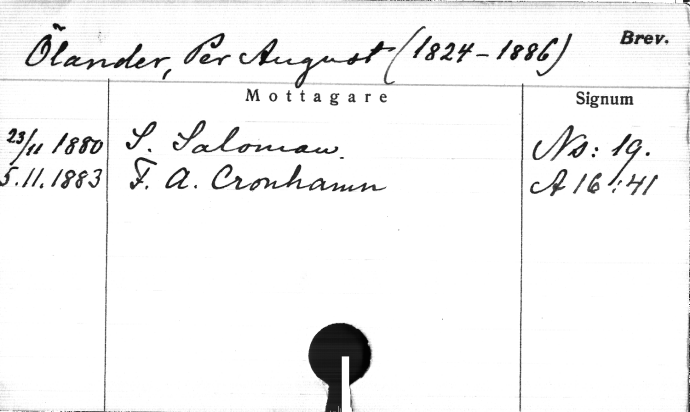 Ölander, Per August (1824-1886) Brev.
Mottagare Signum
23/11 1880 S. Saloman. Ns: 19.
5.11.1883 F. A. Cronhamn A 16:41